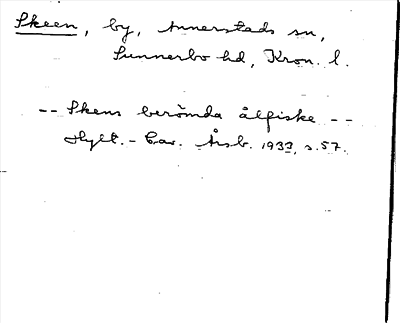 Skeen, by, Annerstads sn,
Sunnerbo hd, Kron. l.
-- Skens berömda ålfiske --
Hylt.-Cav. Årsb. 1933, s. 57.